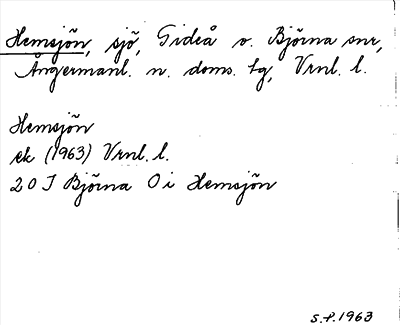 Hemsjön, sjö, Gideå o. Björna snr,
Ångermanl. n. doms. tg, Vrnl. l.
Hemsjön
ek (1963) Vrnl. l.
20 J Björna O i Hemsjön
S.f. 1963